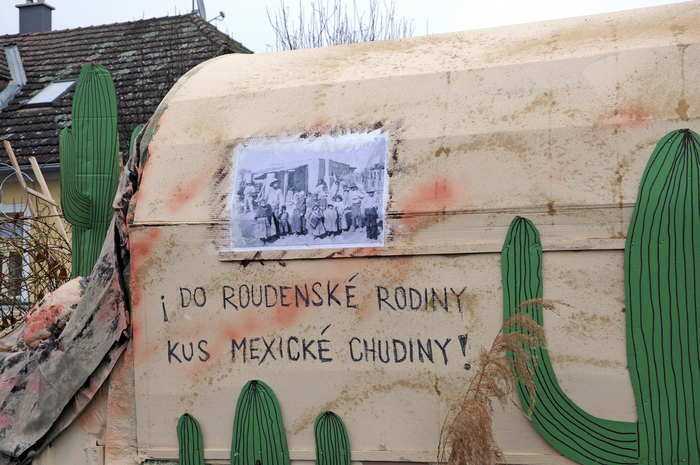 ¡ DO ROUDENSKÉ RODINY
KUS MEXICKÉ CHUDINY!